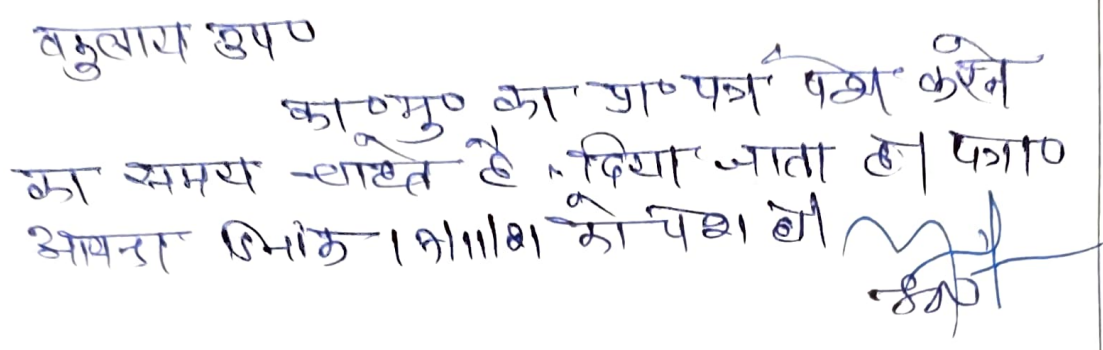 वकुलाय उप०
का०मु० का प्रा० पत्र पेश करने
का समय चाहते है। दिया जाता है। पत्रा०
आयन्दा दिनांक 17/11/21 को पेश हो।